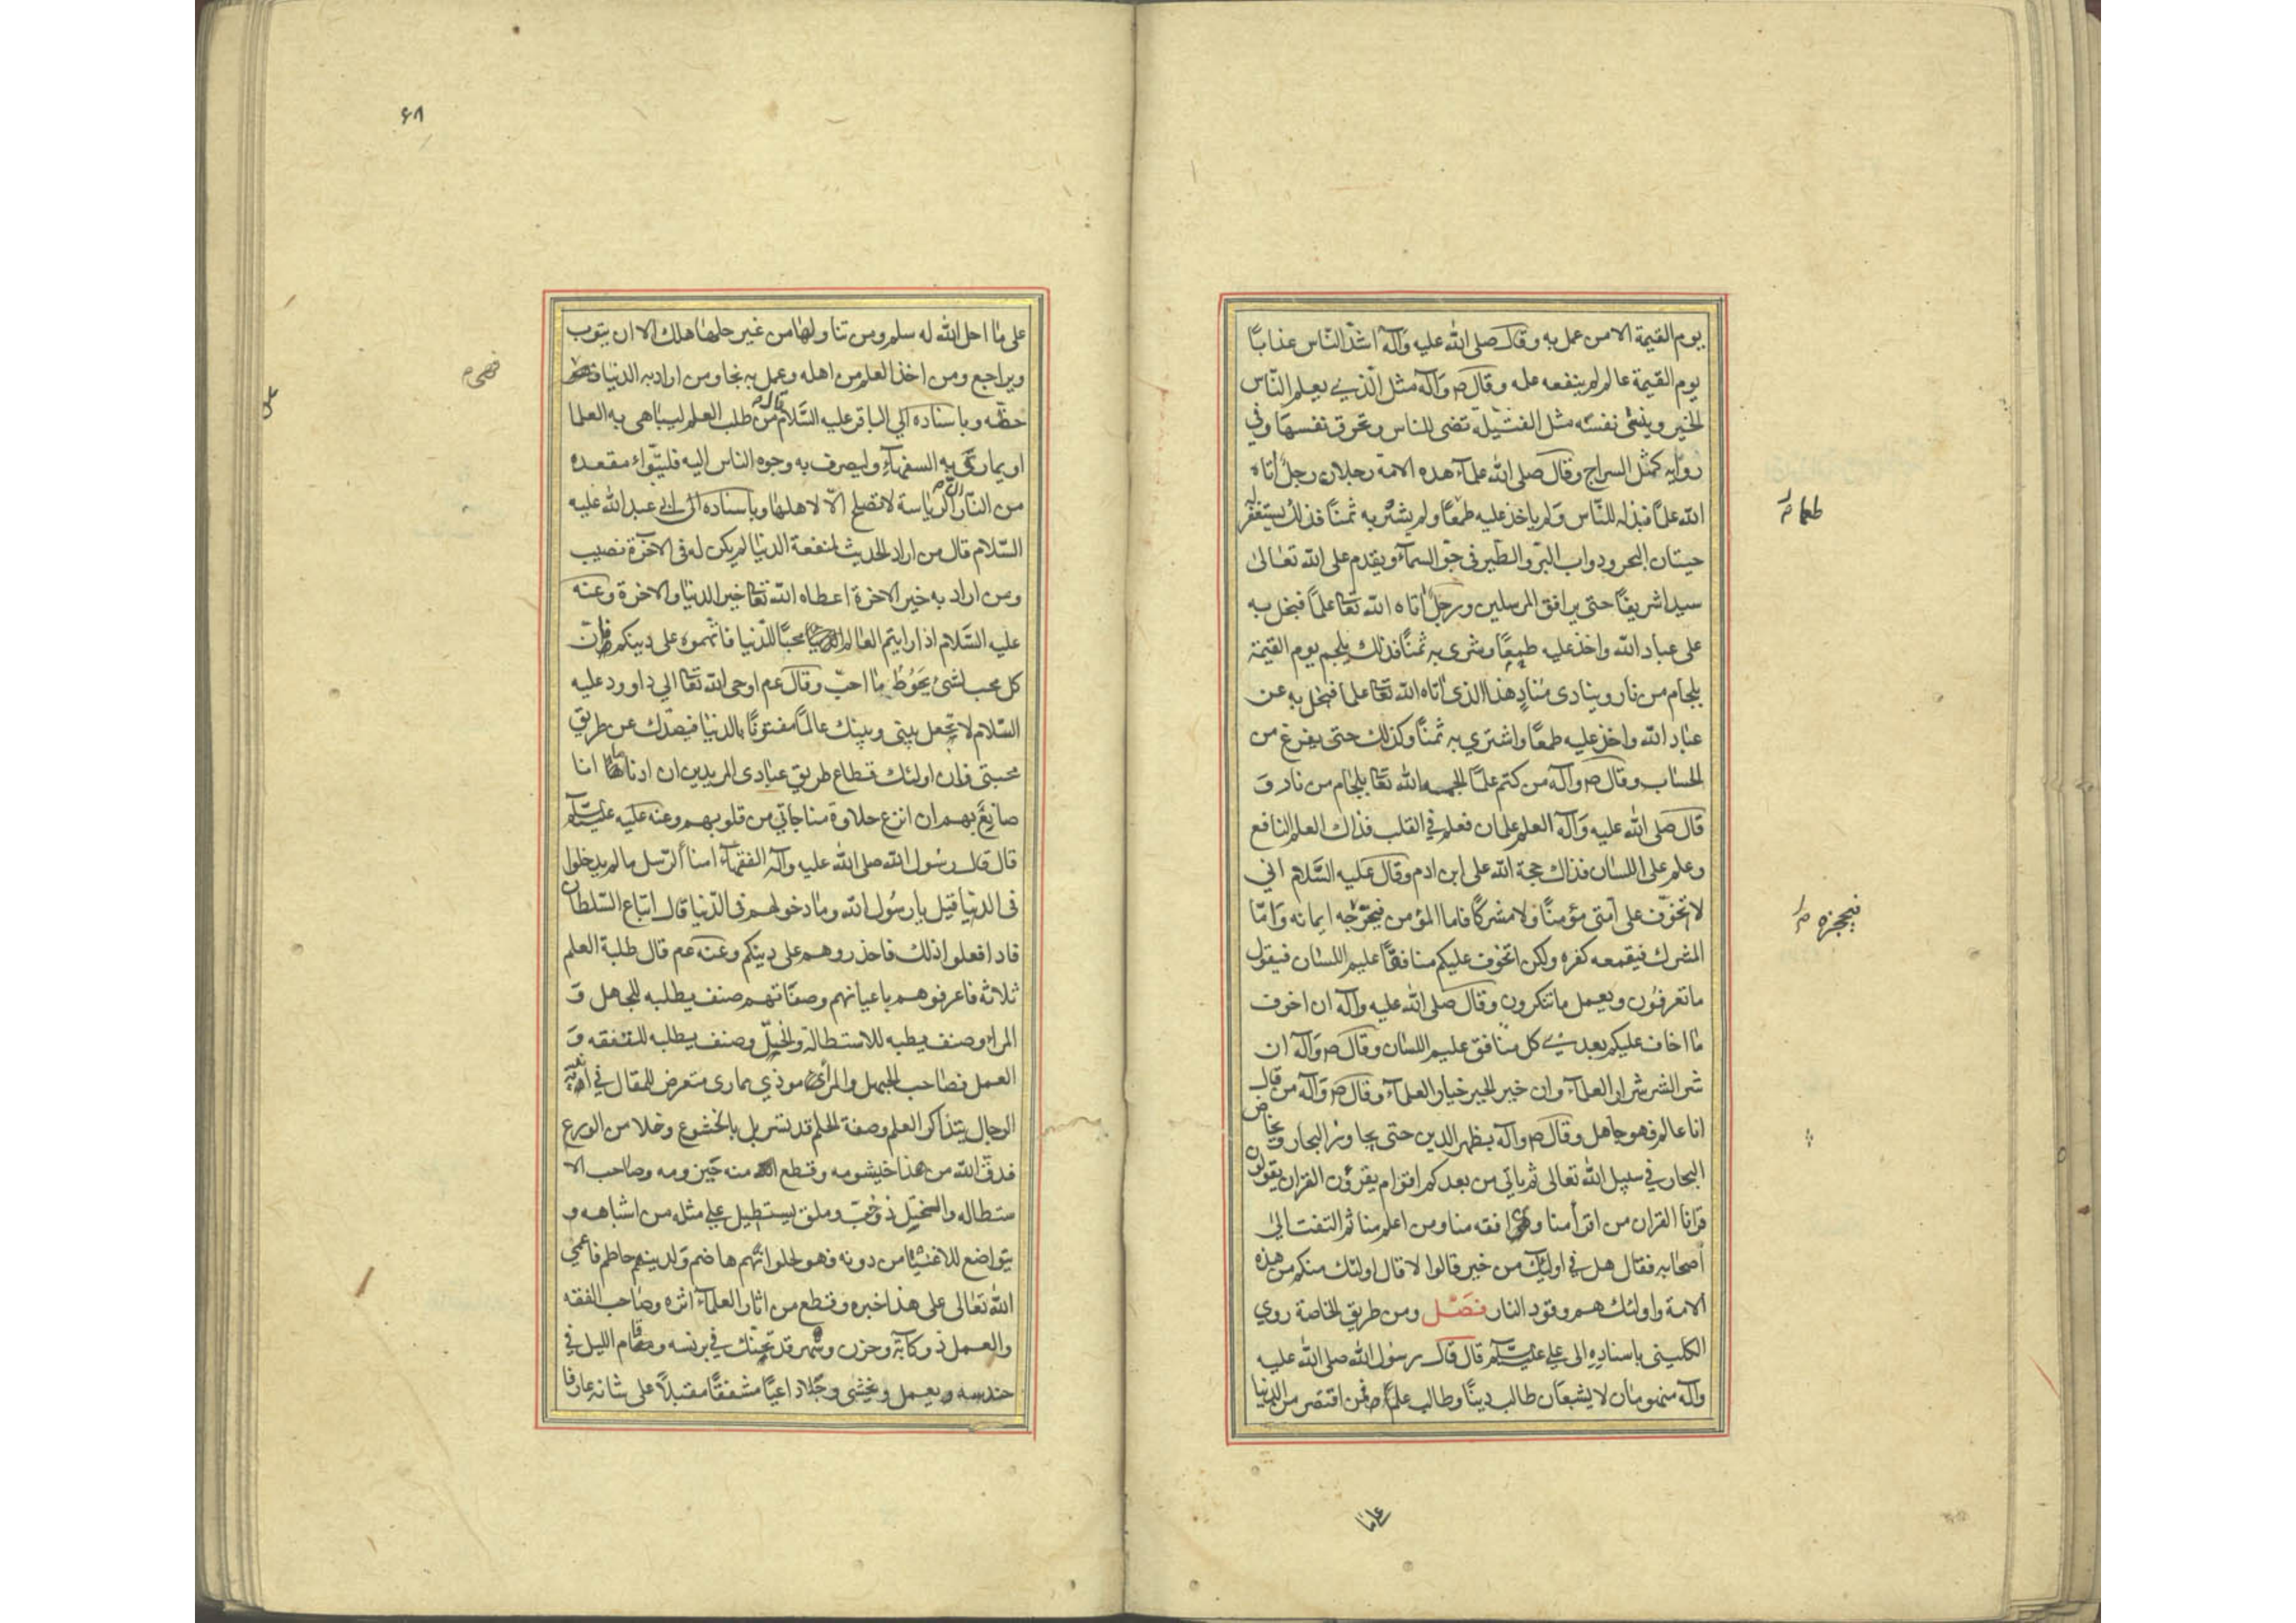 يوم القيمة الا من عمل به وقال صلى الله عليه وآله اشد الناس عذابًا
يوم القيمة عالم لم ينفعه علمه وقال ص وآله مثل الذي يعلم الناس
الخير وينسى نفسه مثل الفتيلة تضى للناس وتحرق نفسها وفي
رواية كمثل السراج وقال صلى الله علماء هذه الامة رجلان رجل اتاه
الله علمًا فبذله للناس ولم ياخذ عليه طمعًا ولم يشتر به ثمنًا فذلك يستغفر له
طعا م
حيتان البحر ودواب البر والطير في جو السماء ويقدم على الله تعالى
سيدا شريفًا حتى يرافق المرسلين ورجل اتاه الله تعا علمًا فبخل به
على عباد الله واخذ عليه طمعًا وشرى به ثمنًا فذلك يلجم يوم القيمة
بلجام من نار وينادى مناد هذا الذى اتاه الله تعا علما فبخل به عن
عباد الله واخذ عليه طمعًا واشترى به ثمنًا وكذلك حتى يفرغ من
الحساب وقال ص وآله من كتم علمًا الجمه الله تعا بلجام من نار و
قال صلى الله عليه وآله العلم علمان فعلم في القلب فذاك العلم النافع
وعلم على اللسان فذاك حجة الله على ابن ادم وقال عليه السلام اني
لا تخوف على امتى مؤمنًا ولا مشركًا فاما المؤمن فيحرجه ايمانه واما
فيحجزه م
المشرك فيقمعه كفره ولكن اتخوف عليكم منافقًا عليم اللسان فيقول
ما تعرفون ويعمل ما تنكرون وقال صلى الله عليه وآله ان اخوف
ما اخاف عليكم بعدي كل منافق عليم اللسان وقال ص وآله ان
شر الشر شرار العلماء وان خير الخير خيار العلماء وقال ص وآله من قال
انا عالم فهو جاهل وقال ص وآله يظهر الدين حتى يجاوز البحار و يخاض
البحار في سبيل الله تعالى ثم ياتي من بعدكم اقوام يقرؤن القران يقولون
قرانا القران من اقرأ منا ومن افقه منا ومن اعلم منا ثم التفت الى
اصحابه فقال هل في اولئك من خير قالوا لا قال اولئك منكم من هذه
الامة واولئك هم وقود النار فصل ومن طريق الخاصة روي
الكليني باسناده الى علي عليه السلم قال قال رسول الله صلى الله عليه
وآله منهومان لا يشبعان طالب دينًا وطالب علمًا فمن اقتصر من الدنيا
على ما
٦٨
على ما احل الله له سلم ومن تناولها من غير حلها هلك الا ان يتوب
ويراجع ومن اخذ العلم من اهله وعمل به نجا ومن اراد به الدنيا فهى
فهى م
حظه وباسناده الى الباقر عليه السلام قال من طلب العلم ليباهى به العلما
او يمارى به السفهاء وليصرف به وجوه الناس اليه فليتبواء مقعده
من النار ان الرياسة لا تصلح الا لاهلها وباسناده الى ابى عبد الله عليه
السلام قال من اراد الحديث لمنفعة الدنيا لم يكن له فى الاخرة نصيب
ومن اراد به خير الاخرة اعطاه الله تعا خير الدنيا والاخرة وعنه
عليه السلام اذا رايتم العالم محبًا للدنيا فاتهموه على دينكم فان
كل محب لشئ يحوط ما احب وقال عم اوحى الله تعا الي داوود عليه
السلام لا تجعل بينى وبينك عالمًا مفتونًا بالدنيا فيصدك عن طريق
محبتى فان اولئك قطاع طريق عبادى المريدين ان ادنا ما انا
صانع بهم ان انزع حلاوة مناجاتي من قلوبهم وعنه عليه السلم
قال قال رسول الله صلى الله عليه وآله الفقهاء امنا ألرسل ما لم يدخلوا
فى الدنيا قيل يا رسول الله وما دخولهم فى الدنيا قال اتباع السلطان
فاذا فعلوا ذلك فاحذروهم على دينكم وعنه عم قال طلبة العلم
ثلاثه فاعرفوهم باعيانهم وصفاتهم صنف يطلبه للجاهل و
المراء وصنف يطبه للاستطالة والختل وصنف يطلبه للتفقه و
العمل فصاحب الجهل والمراء موذي ممارى متعرض للمقال في اندية
الرجال يتذاكر العلم وصفة الحلم قد تسربل بالخشوع وخلا من الورع
فدق الله من هذا خيشومه وقطع منه حيزومه وصاحب الا
ستطاله والختل ذو خب وملق يستطيل علي مثله من اشباهه و
يتواضع للاغنيا من دونه فهو لحلوائهم هاضم ولدينهم حاطم فاعمي
الله تعالى على هذا خبره وقطع من اثار العلماء اثره وصاحب الفقه
والعمل ذو كآبة وحزن وسهر قد تحنك في برنسه وقام الليل في
حندسه ويعمل ويخشى وجلا داعيًا مشفقًا مقبلًا على شانه عارفا